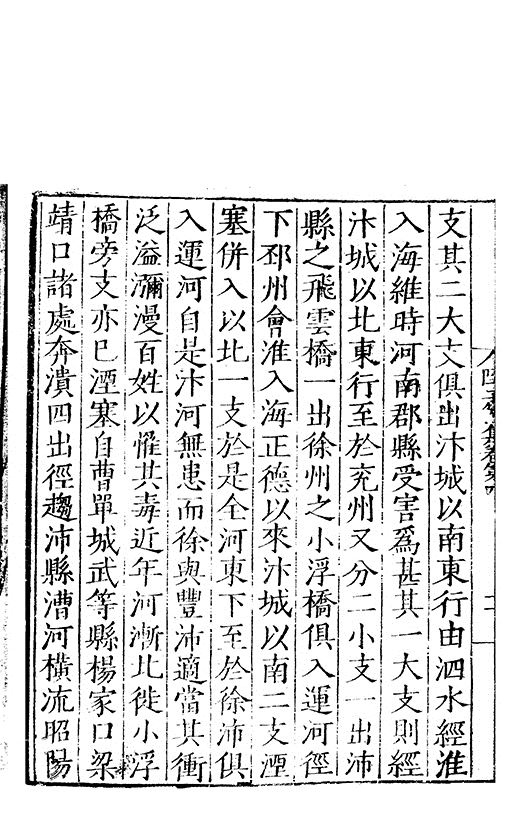 支其二大支俱出汴城以南東行由泗水經淮
入海維時河南郡縣受害爲甚其一大支則經
汴城以北東行至於兖州又分二小支一出沛
縣之飛雲橋一出徐州之小浮橋俱入運河徑
下邳州會淮入海正德以來汴城以南二支湮
塞併入以北一支於是全河東下至於徐沛俱
入運河自是汴河無患而徐與豐沛適當其衝
泛溢瀰漫百姓以惟其毒近年河漸北徙小浮
橋旁支亦已湮塞自曹單城武等縣楊家口梁
靖口諸處奔潰四出徑趨沛縣漕河橫流昭陽